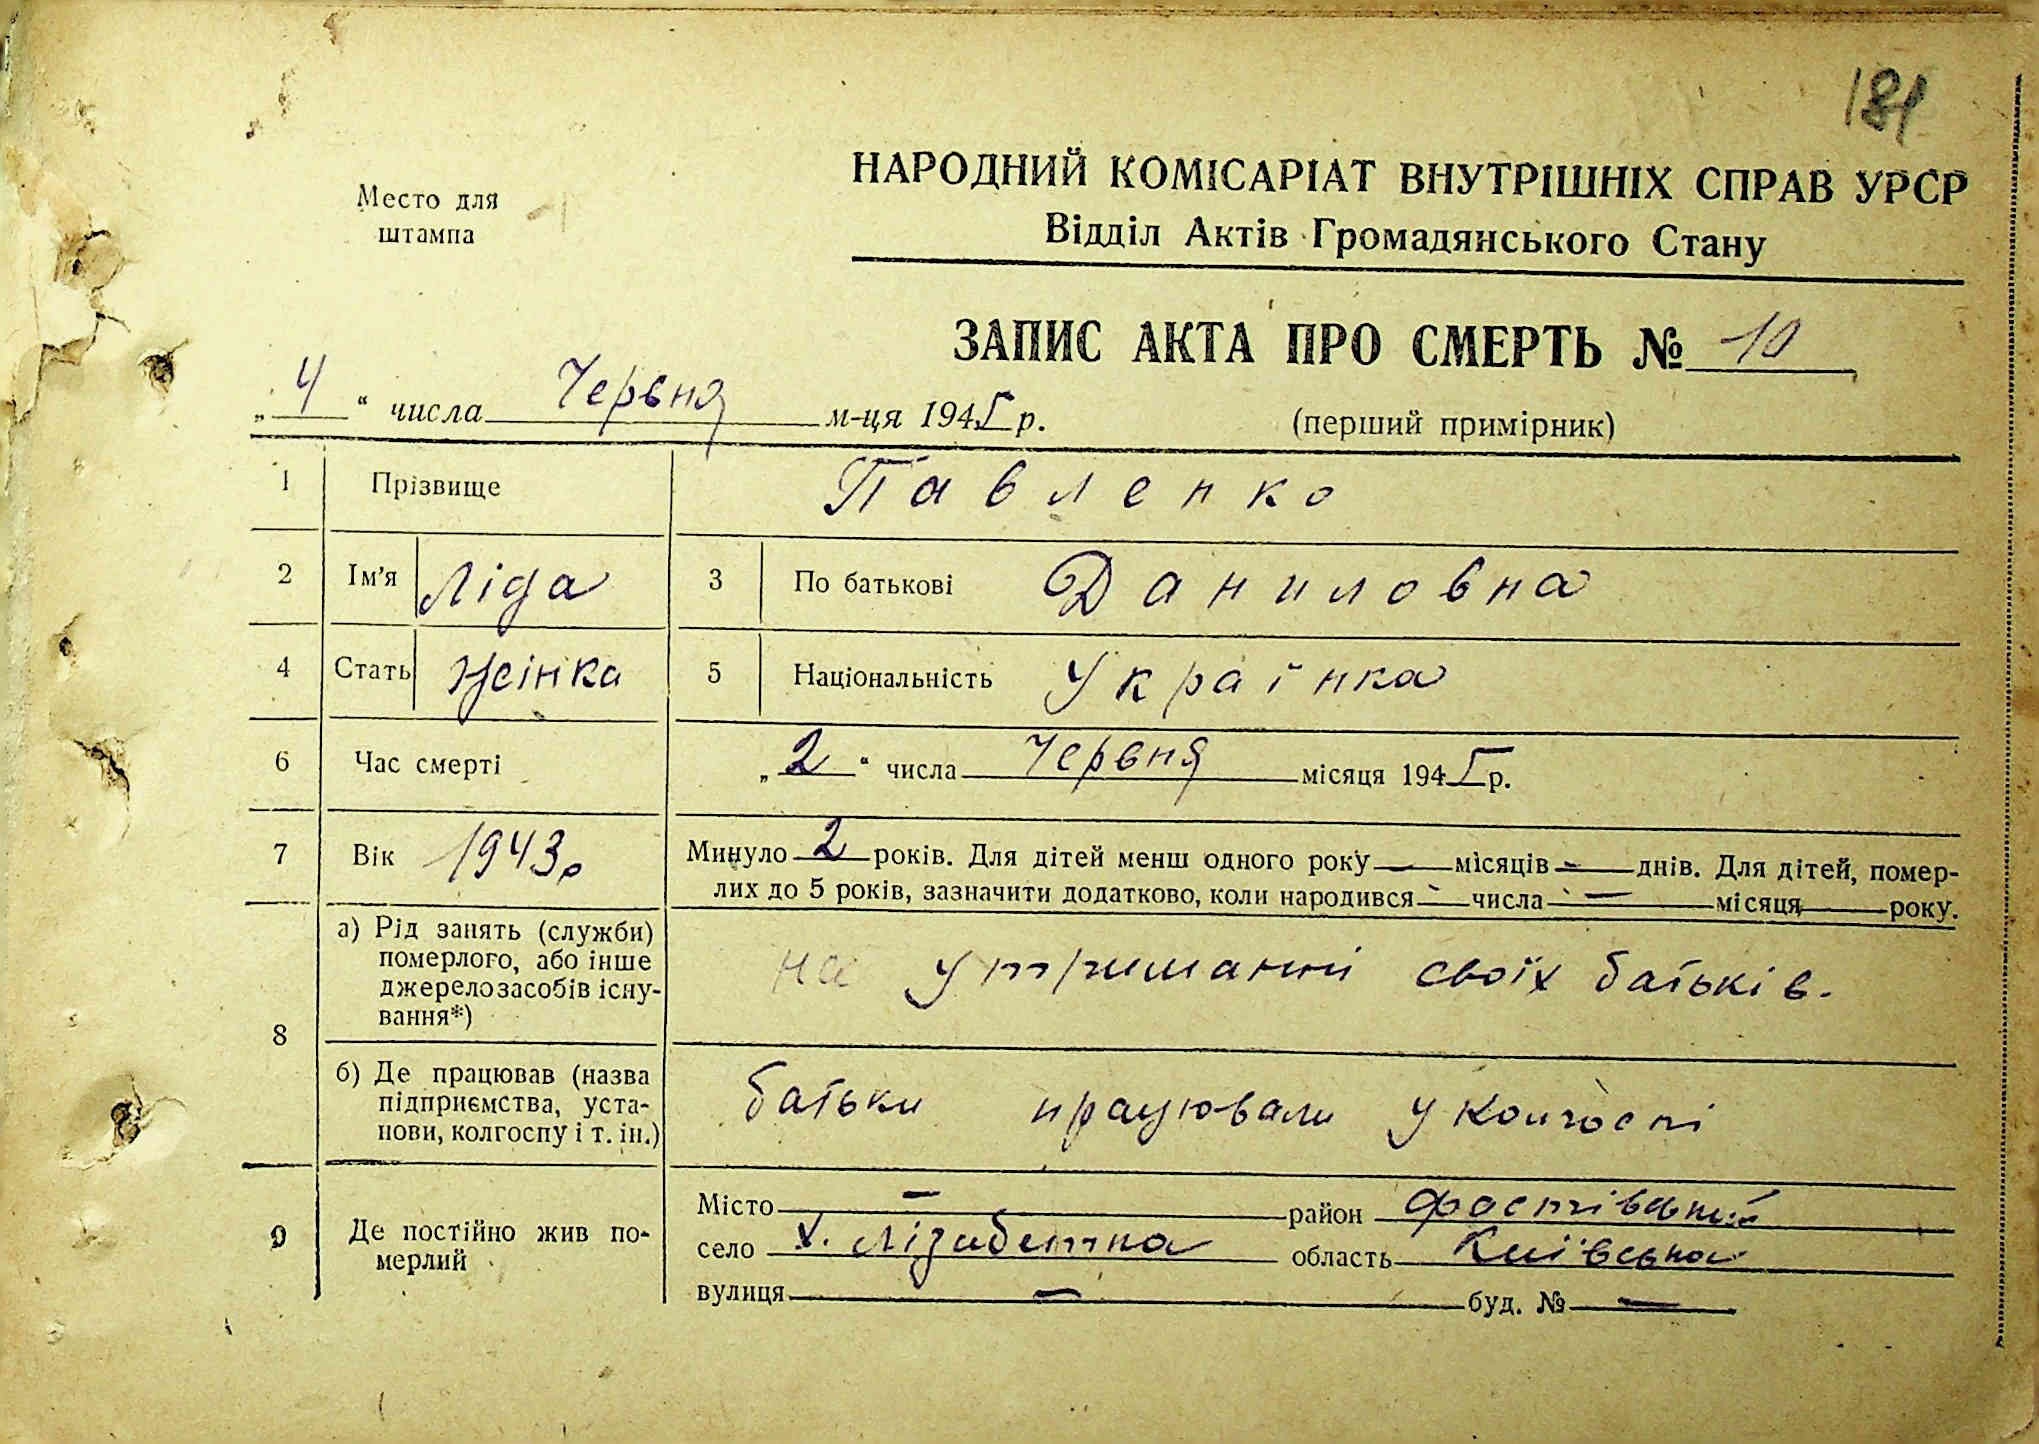 181
Место для
штампа
НАРОДНИЙ КОМІСАРІАТ ВНУТРІШНІХ СПРАВ УРСР
Відділ Актів Громадянського Стану
ЗАПИС АКТА ПРО СМЕРТЬ № 10
„4“ числа Червня м-ця 1945 р.
(перший примірник)
1 Прізвище Павленко
2 Ім'я Ліда 3 По батькові Даниловна
4 Стать Жінка 5 Національність Українка
6 Час смерті „2“ числа Червня місяця 1945 р.
7 Вік 1943р Минуло 2 років. Для дітей менш одного року — місяців - днів. Для дітей, помер-
лих до 5 років, зазначити додатково, коли народився - числа — місяця року.
8 а) Рід занять (служби)
померлого, або інше
джерело засобів існу-
вання*)
на утриманні своїх батьків.
б) Де працював (назва
підприємства, уста-
нови, колгоспу і т. ін.)
батьки працювали у колгоспі
9 Де постійно жив по-
мерлий
Місто — район Фастівський
село х. Лізабетка область Київська
вулиця — буд. № —